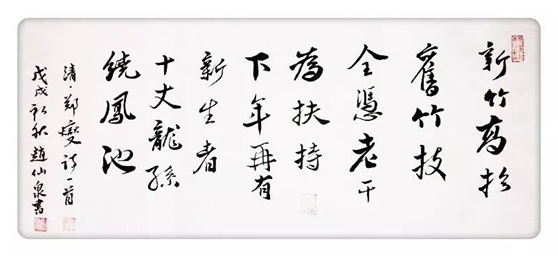 新竹高於
舊竹枝
全憑老干
為扶持
下年再有
新生者
十丈龍孫
繞鳳池
清·鄭燮詩一首
戊戌初秋趙仙泉書